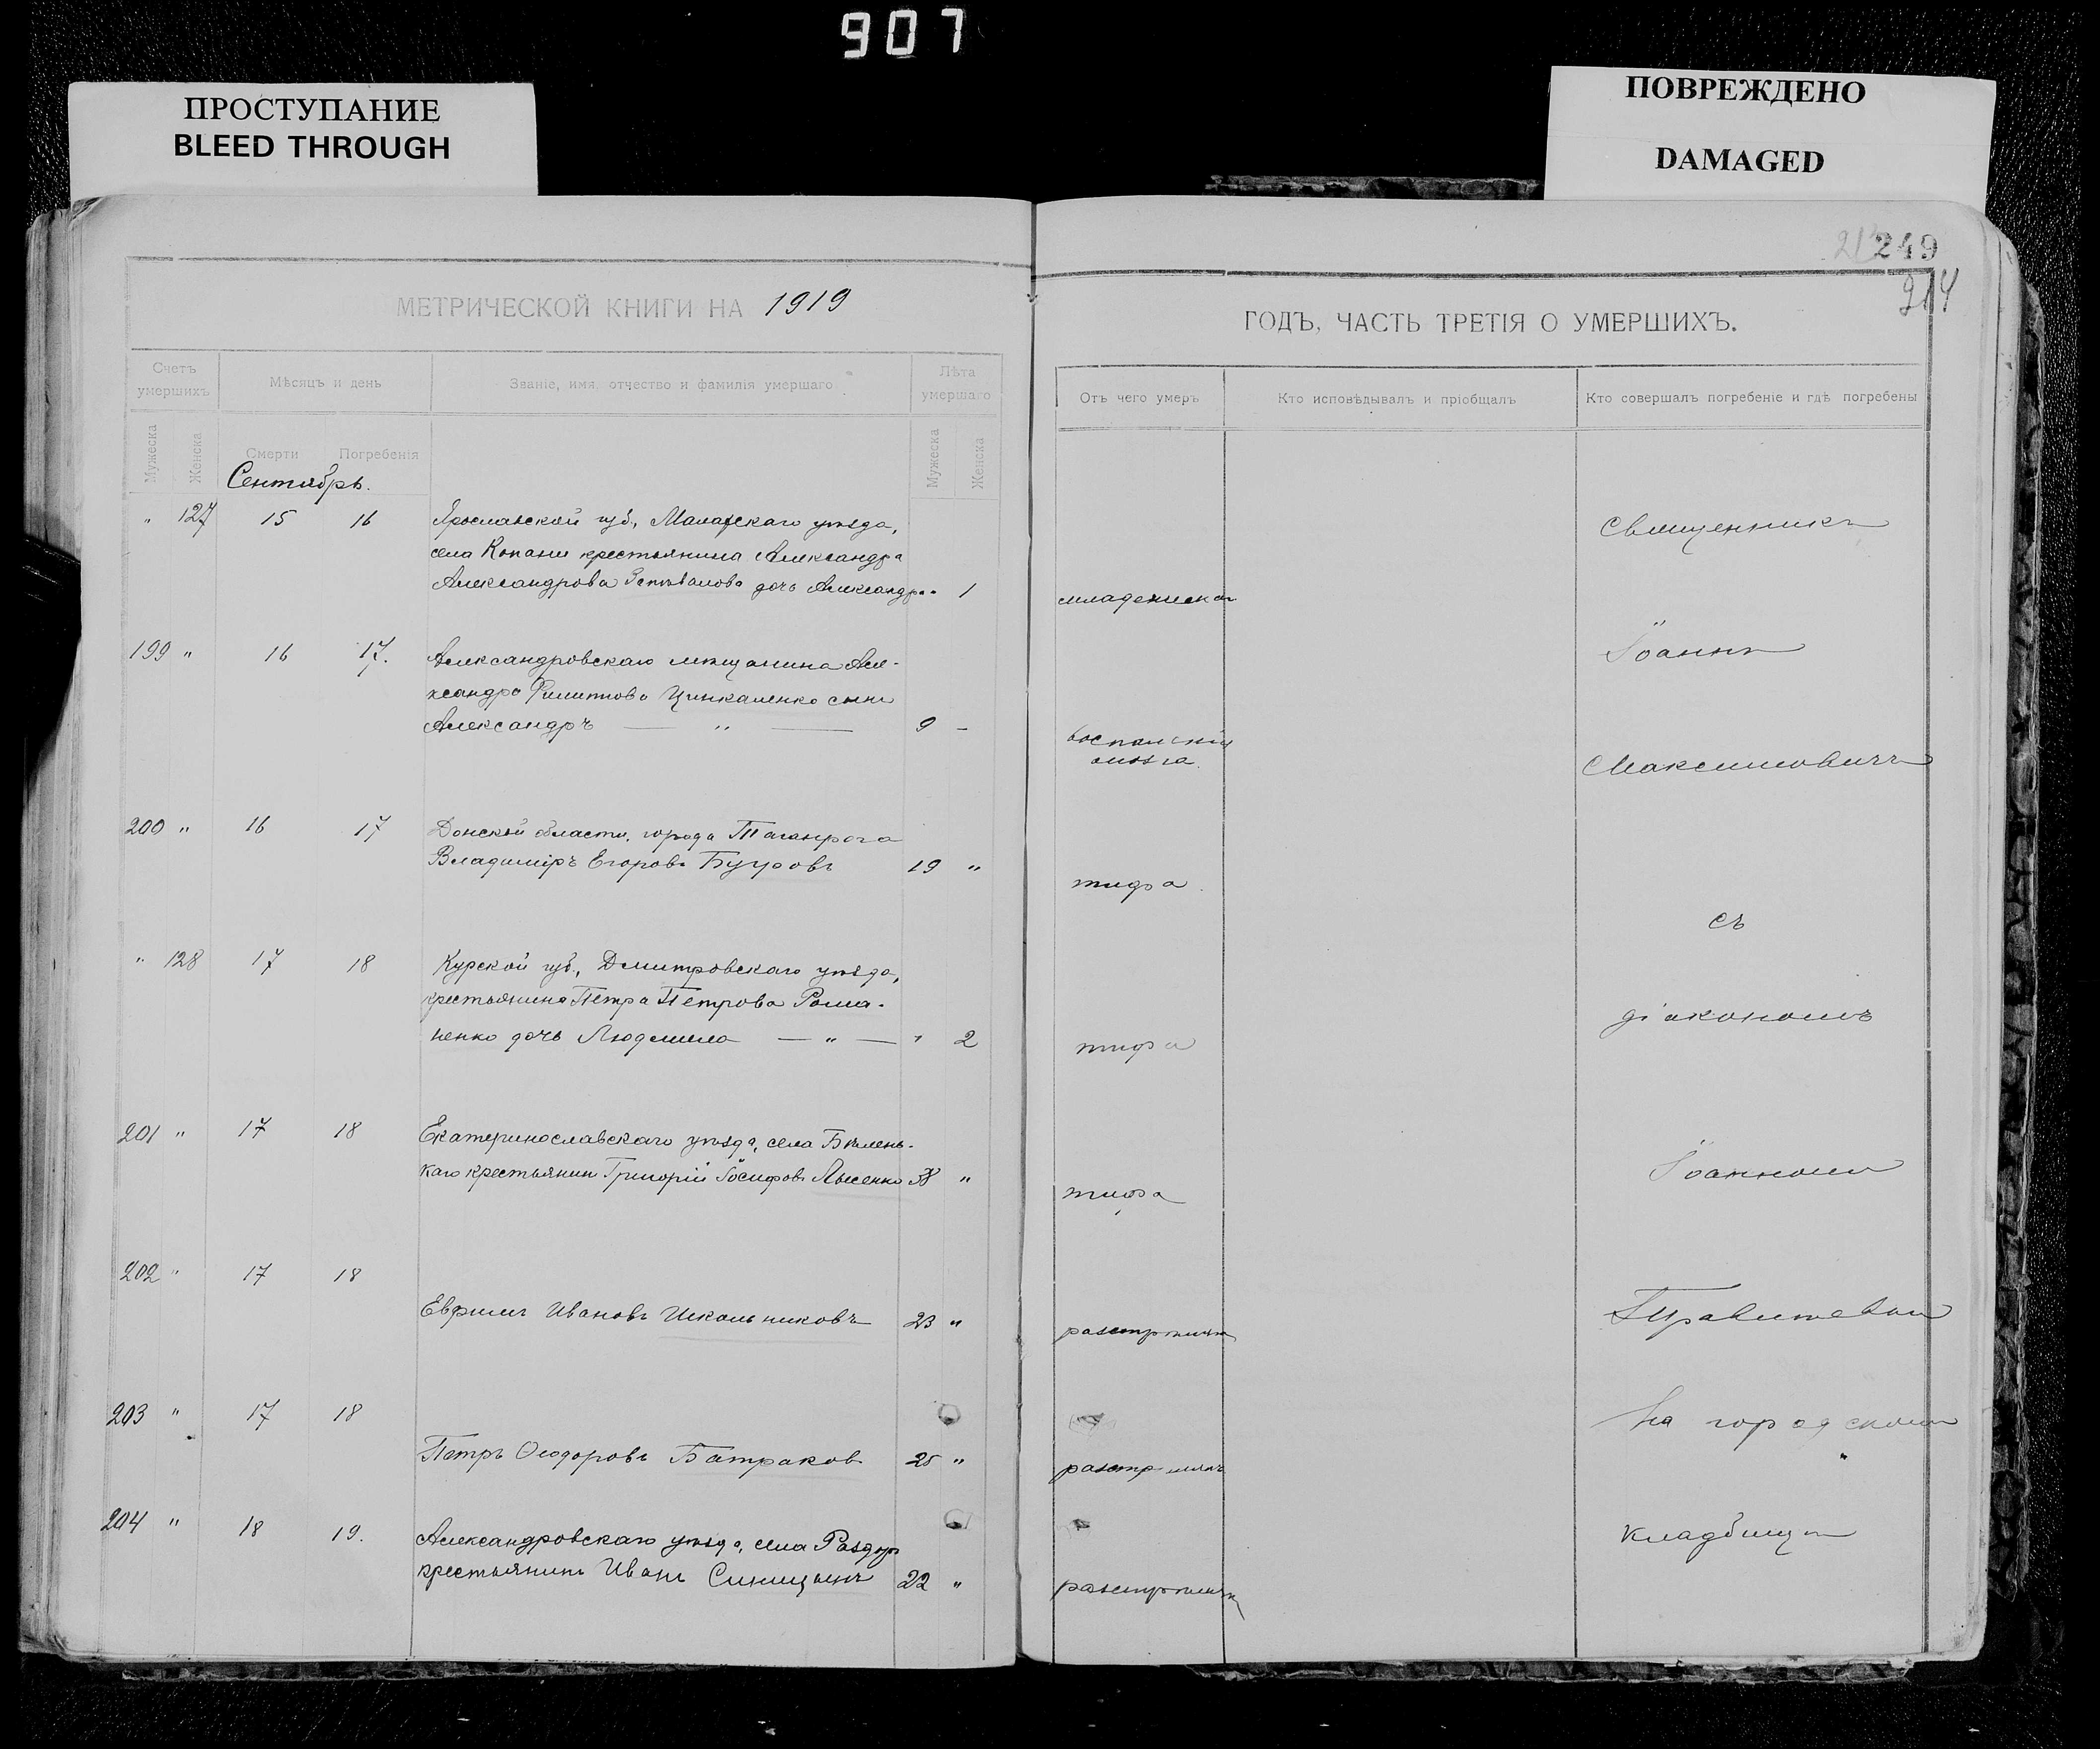 907
ПРОСТУПАНИЕ
BLEED THROUGH
ПОВРЕЖДЕНО
DAMAGED
249
214
МЕТРИЧЕСКОЙ КНИГИ НА 1919
ГОДЪ, ЧАСТЬ ТРЕТІЯ О УМЕРШИХЪ.
Счетъ умершихъ
Мѣсяцъ и день
Званіе, имя, отчество и фамилія умершаго
Лѣта умершаго
Отъ чего умеръ
Кто исповѣдывалъ и пріобщалъ
Кто совершалъ погребеніе и гдѣ погребены
Мужеска
Женска
Смерти
Погребенія
Мужеска
Женска
Сентябрь.
" 127 15 16 Ярославской губ., уѣзда,
села Копани крестьянина Александра
Александрова дочь Александра " 1
младенческой
199 " 16 17. Александровскаго мѣщанина Але-
ксандра Филиппова Цынкаленко сынъ
Александръ — " — 9 -
воспаленія
мозга.
200 " 16 17 Донской области, города Таганрога
Владиміръ Егоровъ Бугровъ 19 "
тифа
" 128 17 18 Курской губ., Дмитровскаго уѣзда,
крестьянина Петра Петрова Рома-
ненко дочь Людмила — " — " 2
тифа
201 " 17 18 Екатеринославскаго уѣзда, села Бѣлень-
каго крестьянин Григорій Іосифовъ Лысенко 38 "
тифа
202 " 17 18
Евфимъ Ивановъ Школьниковъ 23 "
разстрѣлянъ
203 " 17 18
Петръ Ѳеодоровъ Батраковъ 25 "
разстрѣлянъ
204 " 18 19. Александровскаго уѣзда, села Раздоръ
крестьянинъ Иванъ Синицынъ 22 "
разстрѣлянъ
Священникъ
Іоаннъ
Максимовичъ
съ
діакономъ
Іоанномъ
на городскомъ
кладбищѣ